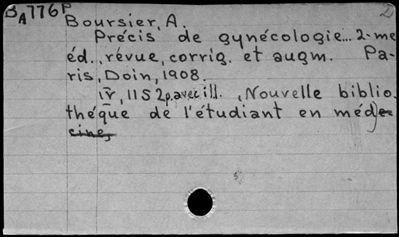 BA776P
Boursier, A.
Précis de gynécologie... 2-me
éd., révue, corrig. et augm. Pa-
ris, Doin, 1908.
IV, 1152p. avec ill. (Nouvelle biblio-
théque de l'étudiant en méde-
cine)